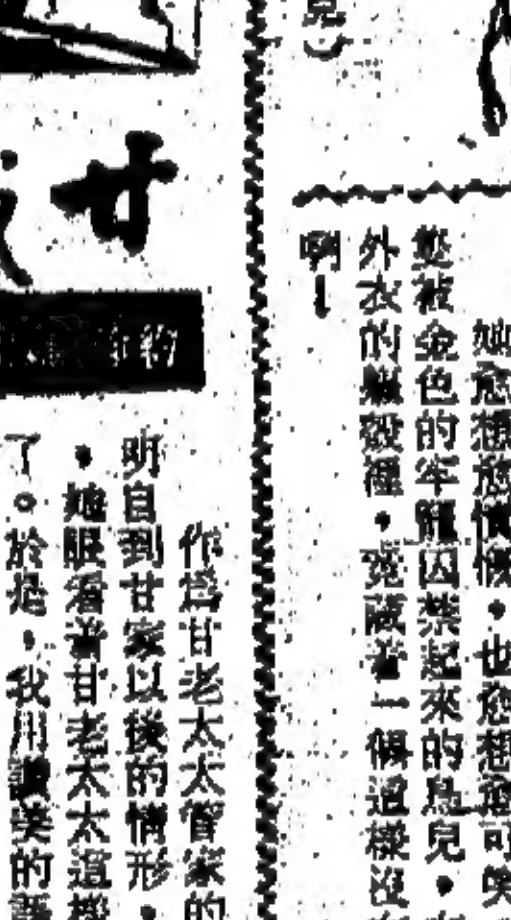 兒）
她愈想愈慚愧，也愈想愈可笑
隻被金色的牢籠囚禁起來的鳥兒，
外衣的軀殼裡，竟藏着一個這樣沒
啊！
甘
作爲甘老太太管家的
明自到甘家以後的情形，
，她眼看着甘老太太這樣
了。於是，我用讚美的語